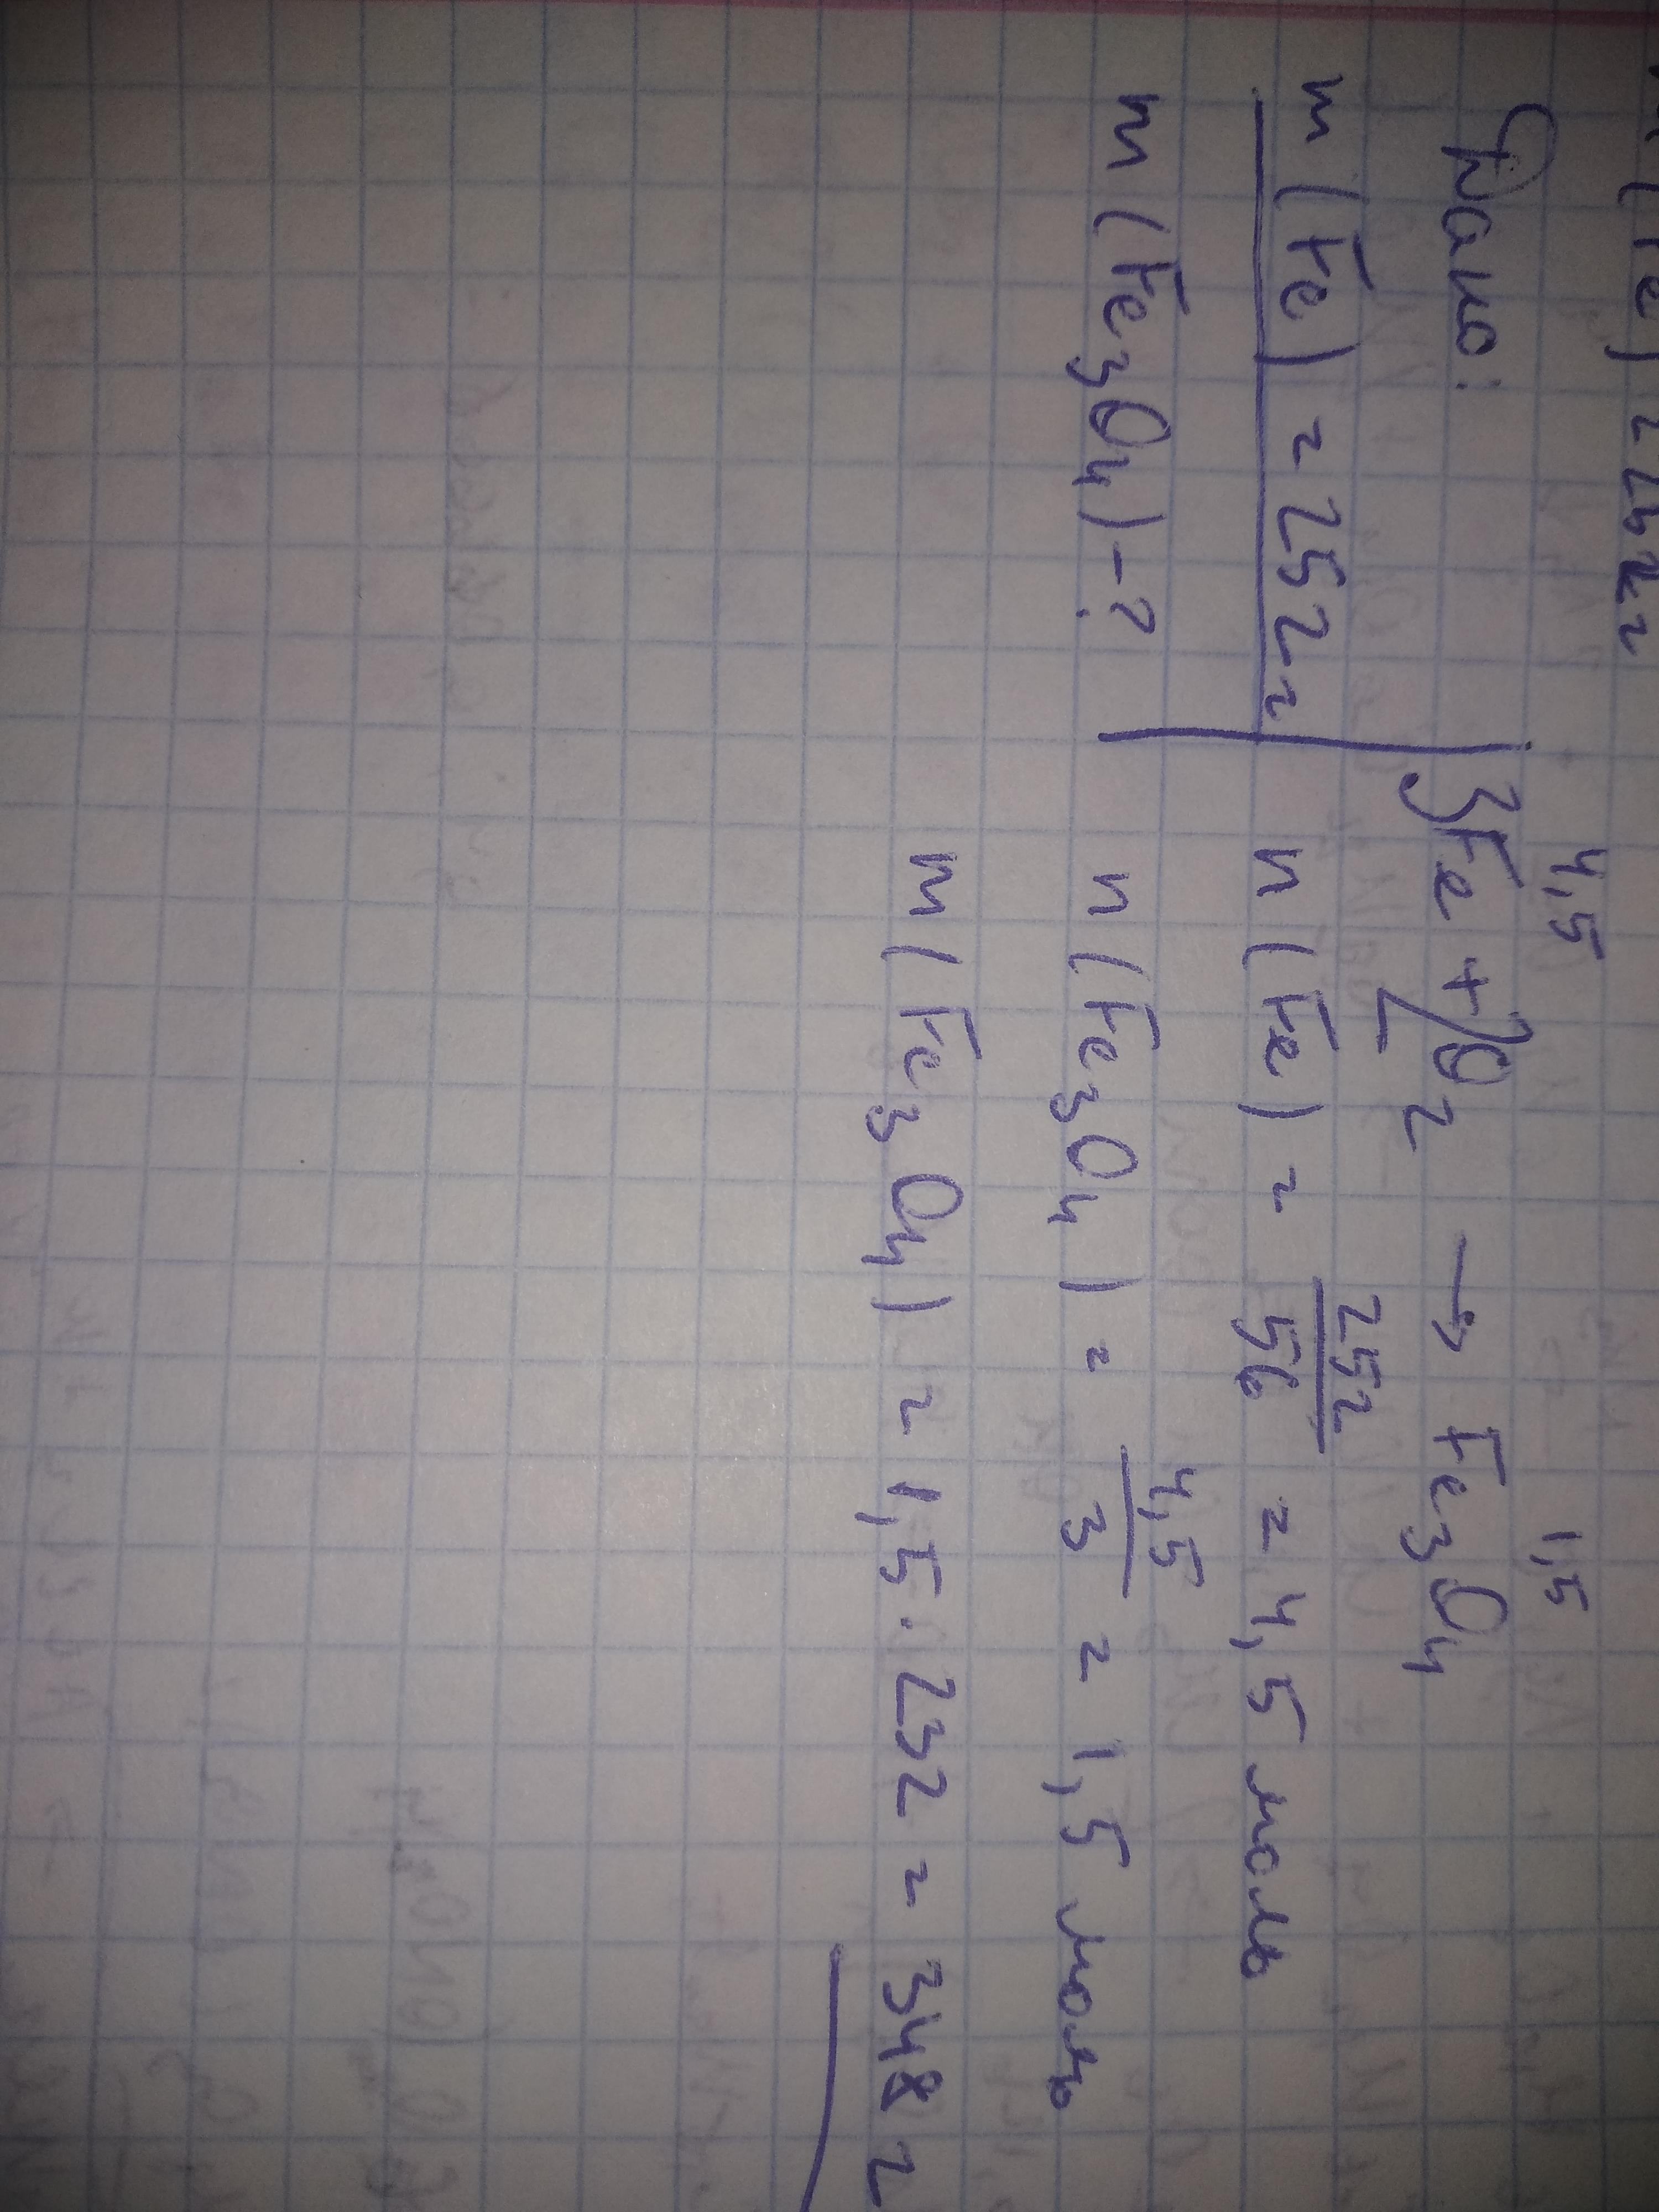 Дано:
m(Fe) = 252г
m(Fe₃O₄) - ?
4,5 1,5
3Fe + 2O₂ → Fe₃O₄
n(Fe) = 252/56 = 4,5 моль
n(Fe₃O₄) = 4,5/3 = 1,5 моль
m(Fe₃O₄) = 1,5 · 232 = 348 г